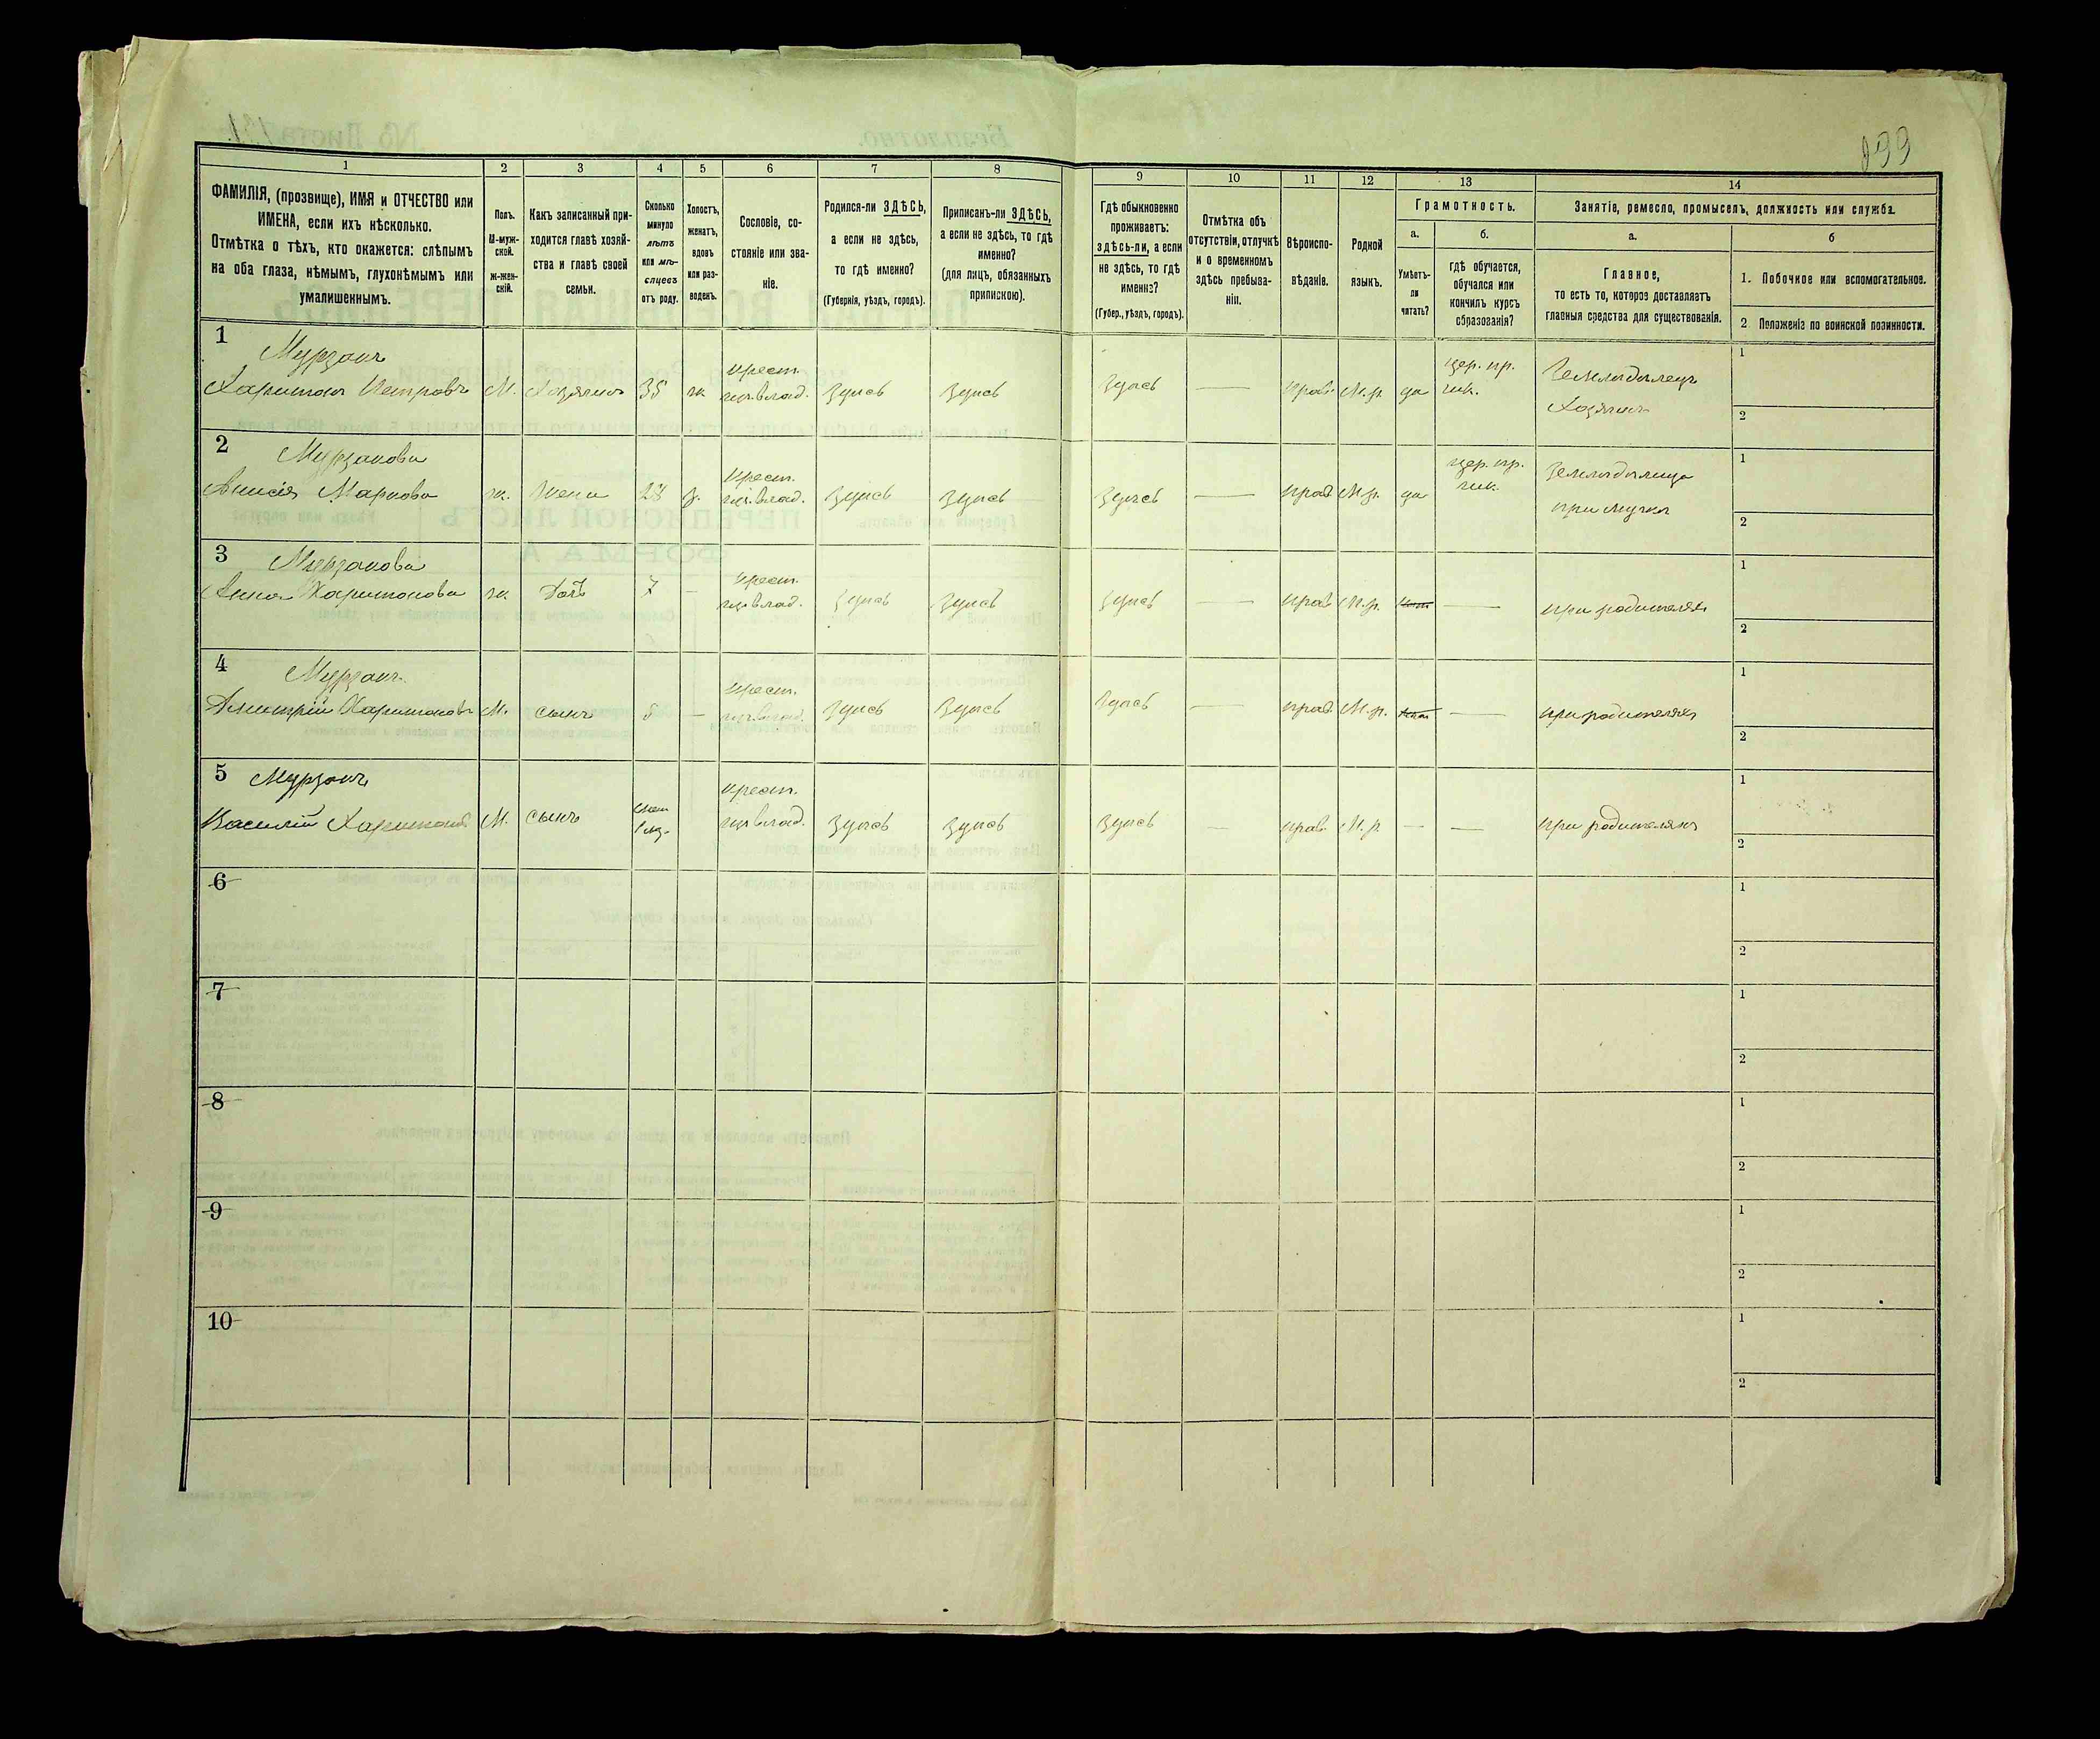 199
1
2
3
4
5
6
7
8
9
10
11
12
13
14
ФАМИЛІЯ, (прозвище), ИМЯ и ОТЧЕСТВО или
ИМЕНА, если ихъ нѣсколько.
Отмѣтка о тѣхъ, кто окажется: слѣпымъ
на оба глаза, нѣмымъ, глухонѣмымъ или
умалишеннымъ.
Полъ.
М-муж-
ской.
ж-жен-
скій.
Какъ записанный при-
ходится главѣ хозяй-
ства и главѣ своей
семьи.
Сколько
минуло
лѣтъ
или мѣ-
сяцевъ
отъ роду.
Холостъ,
женатъ,
вдовъ
или раз-
веденъ.
Сословіе, со-
стояніе или зва-
ніе.
Родился-ли ЗДѢСЬ,
а если не здѣсь,
то гдѣ именно?
(Губернія, уѣздъ, городъ).
Приписанъ-ли ЗДѢСЬ,
а если не здѣсь, то гдѣ
именно?
(для лицъ, обязанныхъ
припискою).
Гдѣ обыкновенно
проживаетъ:
здѣсь-ли, а если
не здѣсь, то гдѣ
именно?
(Губер., уѣздъ, городъ).
Отмѣтка объ
отсутствіи, отлучкѣ
и о временномъ
здѣсь пребыва-
ніи.
Вѣроиспо-
вѣданіе.
Родной
языкъ.
Грамотность.
а.
Умѣетъ-
ли
читать?
б.
гдѣ обучается,
обучался или
кончилъ курсъ
образованія?
Занятіе, ремесло, промыселъ, должность или служба.
а.
Главное,
то есть то, которое доставляетъ
главныя средства для существованія.
б
1. Побочное или вспомогательное.
2. Положеніе по воинской повинности.
1
Мурзакъ
Харитонъ Петровъ М. Хозяинъ 35 ж. крест. Здѣсь Здѣсь Здѣсь — прав. М.р. да цер. пр. Земледѣлецъ
Хозяинъ
1
2
2
Мурзакова
Анисія Маркова ж. Жена 28 з. крест. Здѣсь Здѣсь Здѣсь — прав М.р. да цер. пр.
при мужѣ
1
2
3
Мурзакова
Анна Харитонова ж. Дочь 7 — крест. Здѣсь Здѣсь Здѣсь — прав М.р. — при родителяхъ
1
2
4
Мурзакъ
Дмитрій Харитоновъ М. сынъ 5 — крест. Здѣсь Здѣсь Здѣсь — прав. М.р. — при родителяхъ
1
2
5
Мурзакъ
Василій Харитоновъ М. сынъ крест. Здѣсь Здѣсь Здѣсь — прав. М.р. — — при родителяхъ
1
2
6
1
2
7
1
2
8
1
2
9
1
2
10
1
2